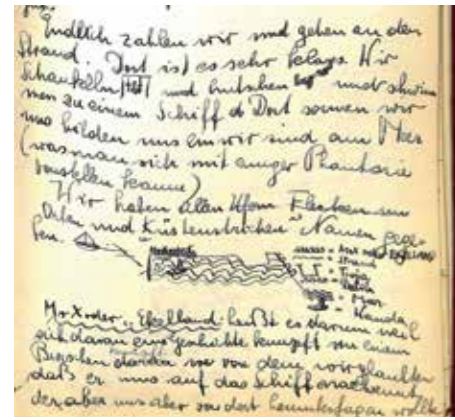 Endlich zahlen wir und gehen an den
Strand. Dort ist es sehr klass. Wir
schaukeln und hutschen und schwim
men zu einem Schiff d Dort sonnen wir
uns bilden uns ein wir sind am Meer
(was man sich mit einiger Phantasie
vorstellen kann)
Wir haben allen Ufern Flecken
Orten und Küstenstrichen Namen gege-
ben.
= Strand
= Troja
Mr X oder "Ekelland" heißt es darum weil
sich daran eine Geschichte knüpft von einem
Burschen von dem wir glaubten
daß er uns auf das Schiff nachkommt
der aber uns aber von dort herunterjagen wollte